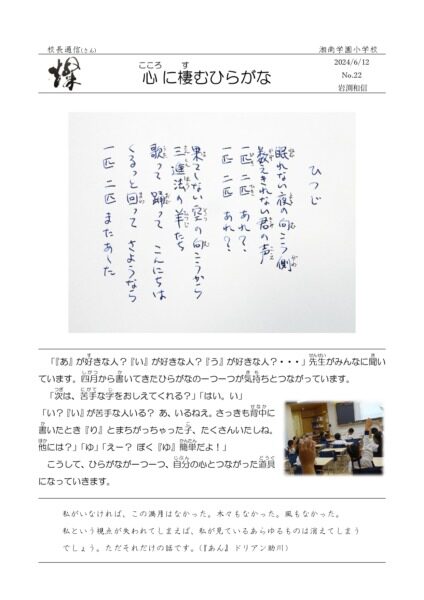 校長通信(さん)
湘南学園小学校
燦
心に棲むひらがな
2024/6/12
No.22
岩渕和信
ひつじ
眠れない夜の向こう側
数えきれない君の声
一匹 二匹 あれ？
一匹 二匹 あれ？
果てしない空の向こうから
三進法の羊たち
歌って 踊って こんにちは
くるっと回って さようなら
一匹 二匹 またあした
「『あ』が好きな人？『い』が好きな人？『う』が好きな人？・・・」先生がみんなに聞い
ています。四月から書いてきたひらがなの一つ一つが気持ちとつながっています。
「次は、苦手な字をおしえてくれる？」「はい。い」
「い？『い』が苦手な人いる？ あ、いるねえ。さっきも背中に
書いたとき『り』とまちがっちゃった子、たくさんいたしね。
他には？」「ゆ」「えー？ ぼく『ゆ』簡単だよ！」
こうして、ひらがなが一つ一つ、自分の心とつながった道具
になっていきます。
私がいなければ、この満月はなかった。木々もなかった。風もなかった。
私という視点が失われてしまえば、私が見ているあらゆるものは消えてしまう
でしょう。ただそれだけの話です。(『あん』ドリアン助川)